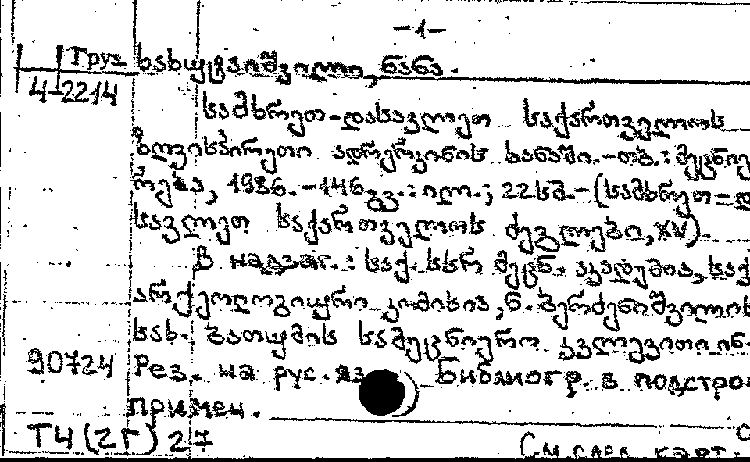 -1-
Груз სახუტაიშვილი, ნანა.
4-2214
სამხრეთ-დასავლეთ საქართველოს
ზღვისპირეთი ადრერკინის ხანაში.-თბ.: მეცნიე
რება, 1986.-146გვ.: ილ.; 22სმ.-(სამხრეთ-და
სავლეთ საქართველოს ძეგლები, XV).
В надзаг.: საქ. სსრ მეცნ. აკადემია, საქ
არქეოლოგიური კომისია, ნ. ბერძენიშვილის
სახ. ბათუმის სამეცნიერო კვლევითი ინ-
90724 Рез. на рус. яз. Библиогр. в подстроч
примеч.
Т4(2Г) 27
См. след. карт.